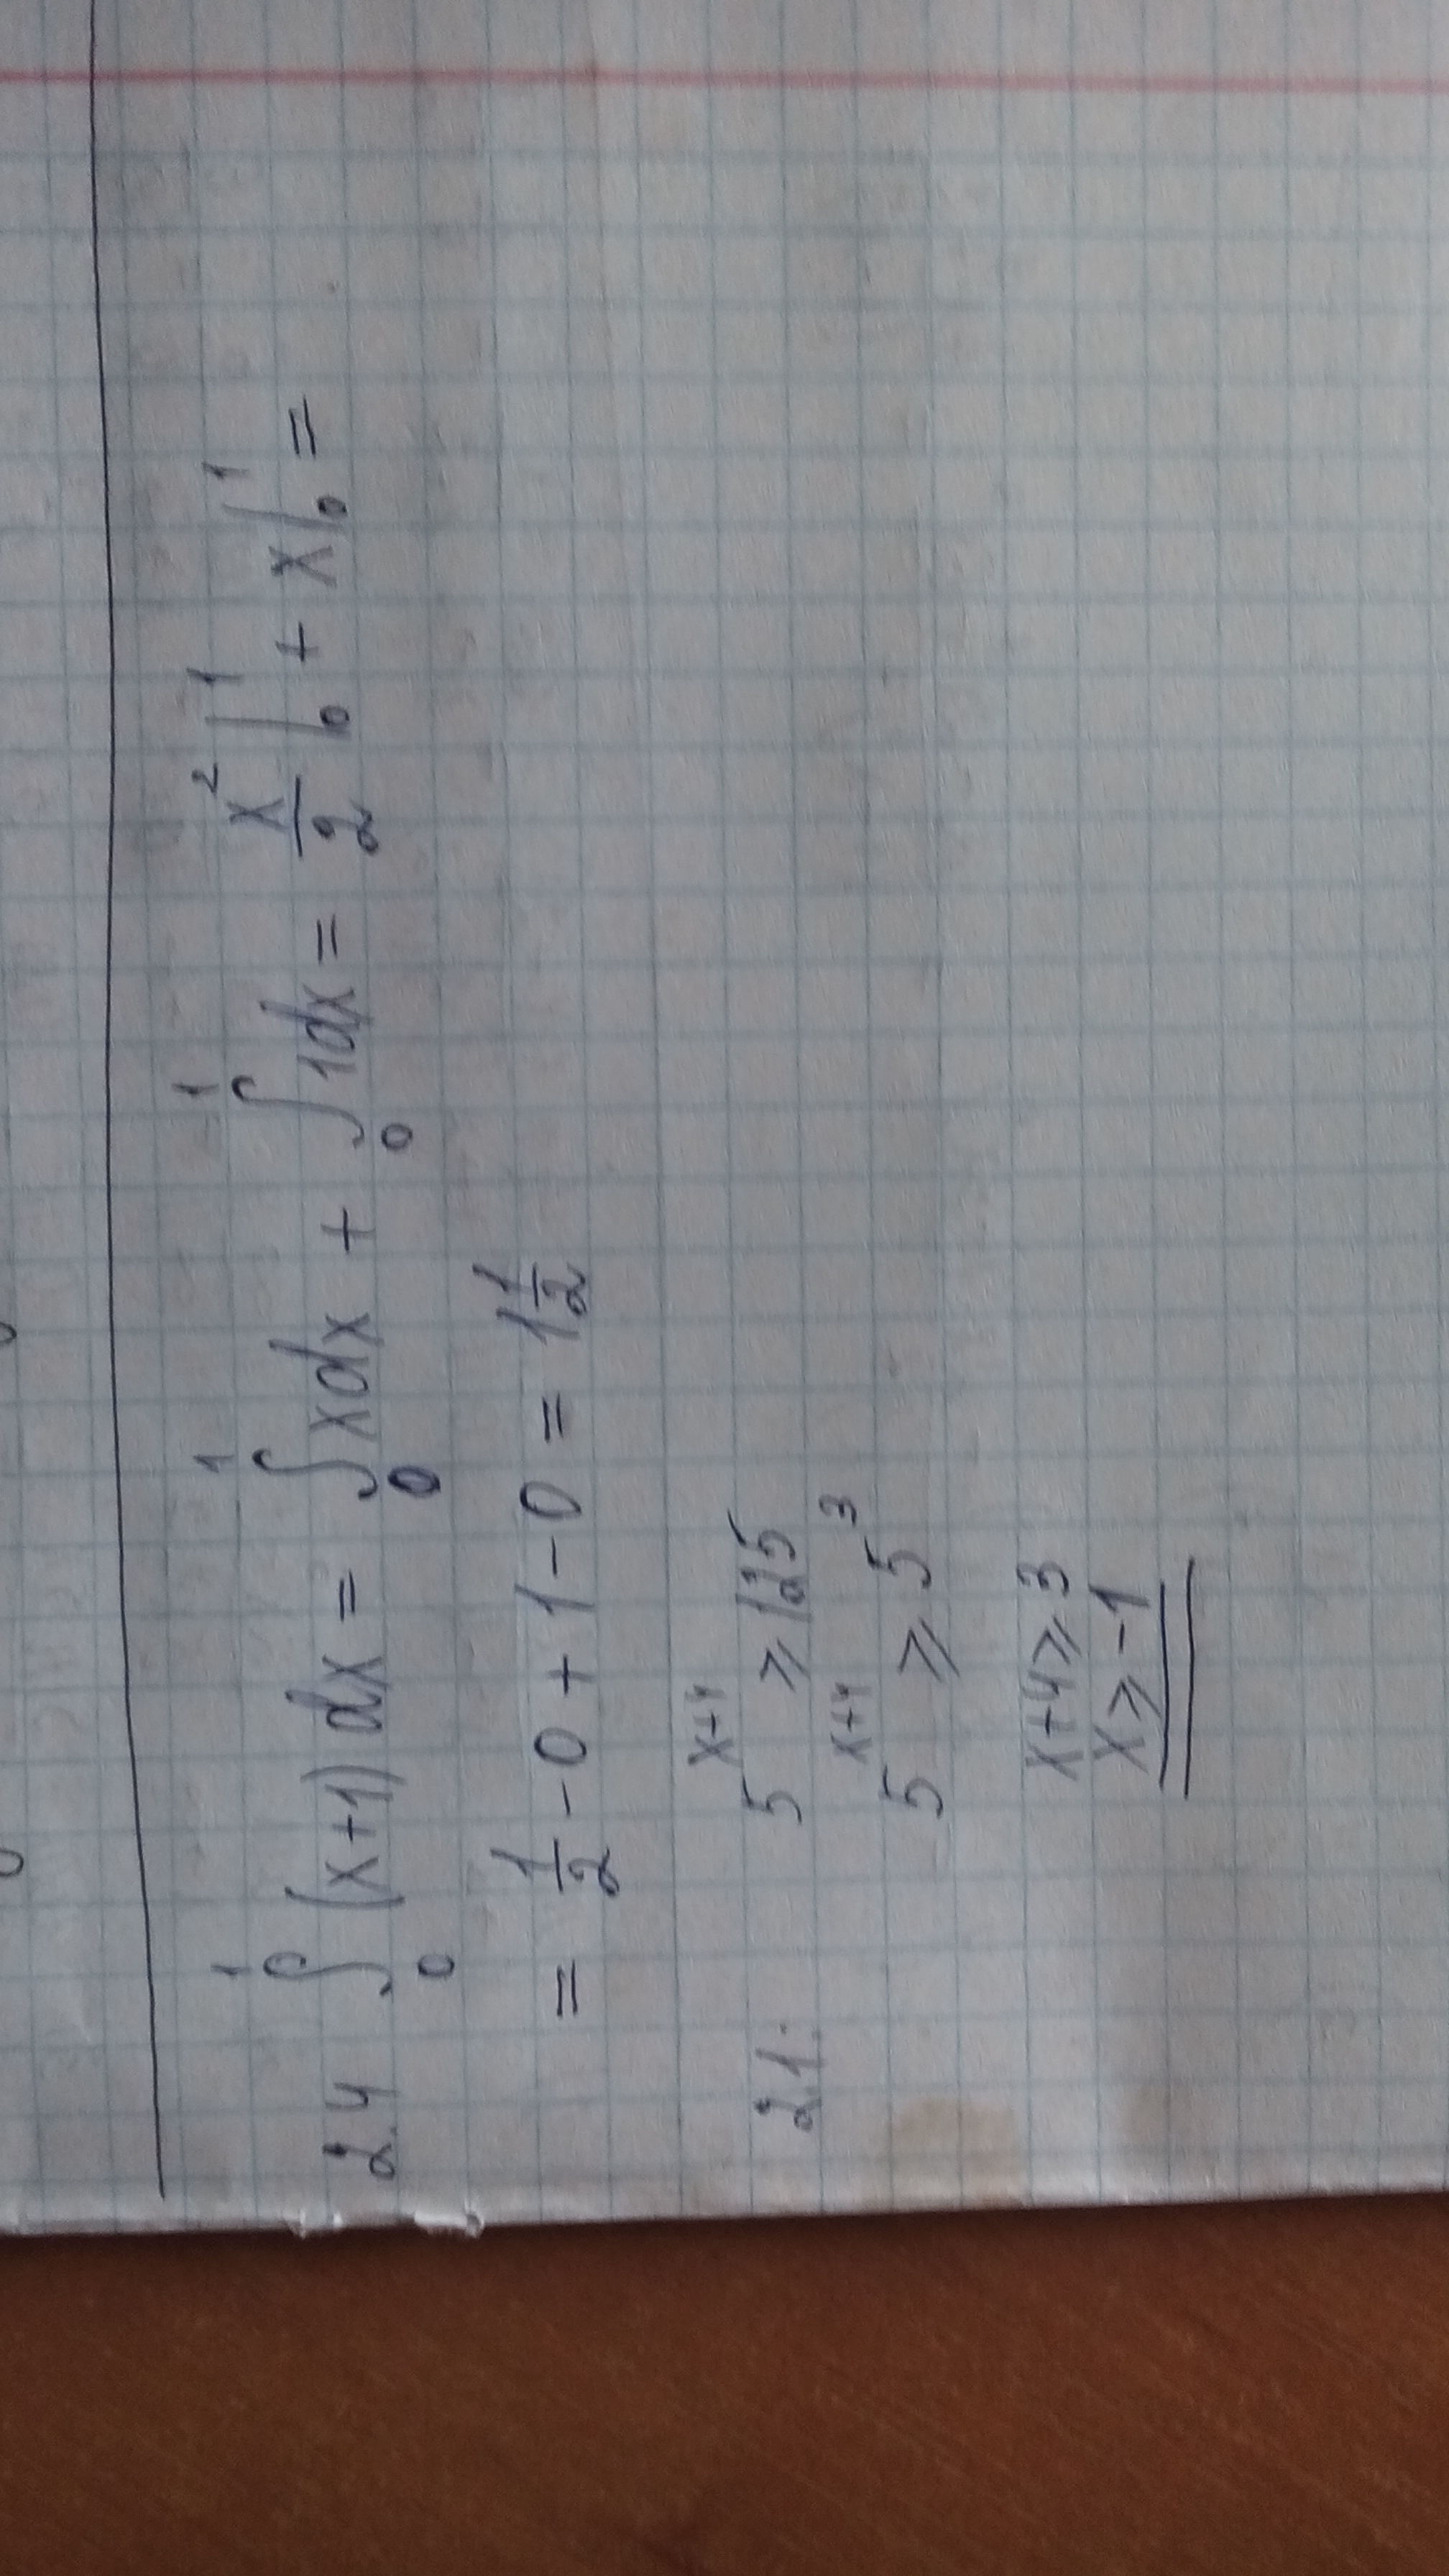 2.4 ∫₀¹ (x+1) dx = ∫₀¹ xdx + ∫₀¹ 1dx = x²/2 |₀¹ + x|₀¹ =
= 1/2 - 0 + 1 - 0 = 1 1/2
2.1. 5^(x+4) ⩾ 125
5^(x+4) ⩾ 5³
x+4⩾3
x⩾-1